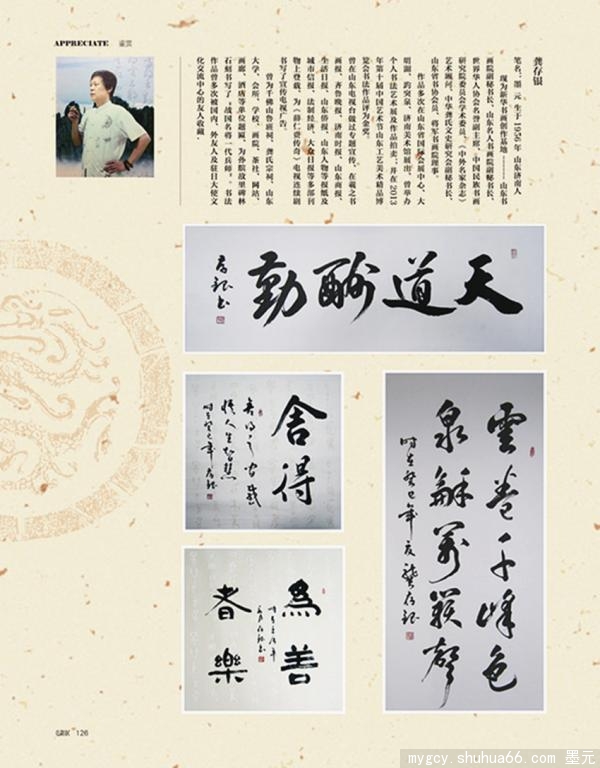 APPRECIATE 鉴赏
龚存银
笔名：墨元 生于1956年 山东济南人
现为新华书画创作基地——山东书
画院副秘书长、山东名人书画院副秘书长、
世界华人协会名誉副主席、中国民族书画
研究院委员会学术委员、《中外名家杂志》
艺术顾问、中华龚氏文史研究会副秘书长、
山东省书协会员、将军书画院理事。
作品多次在山东省国际会展中心、大
明湖、趵突泉、济南美术馆展出，曾举办
个人书法艺术展及作品拍卖；并在2013
年第十届中国艺术节山东工艺美术精品博
览会书法作品评为金奖。
曾在山东电视台做过专题宣传，在
画报、齐鲁晚报、济南时报、山东商报、
生活日报、山东侨报、山东人物等报纸及
城市信报、法制经济、大众日报等多部刊
物上登载，为《薛仁贵传奇》电视连续剧
书写了宣传电视广告。
曾为千佛山鲁班祠、龚氏宗祠、山东
大学、会所、学校、画院、茶社、网站、
画廊、酒店等单位题匾，为孙膑故里碑林
石刻书写了，战国名将一代兵师。书法
作品曾多次被国内、外友人及驻日大使文
化交流中心的友人收藏。
天道酬勤
存银书
舍得
悟人生智慧
时在癸巳年 存银
云卷千峰色
泉和万籁声
时在癸巳年夏 龚存银
为善
者乐
126
mygcy.shuhua66.com 墨元